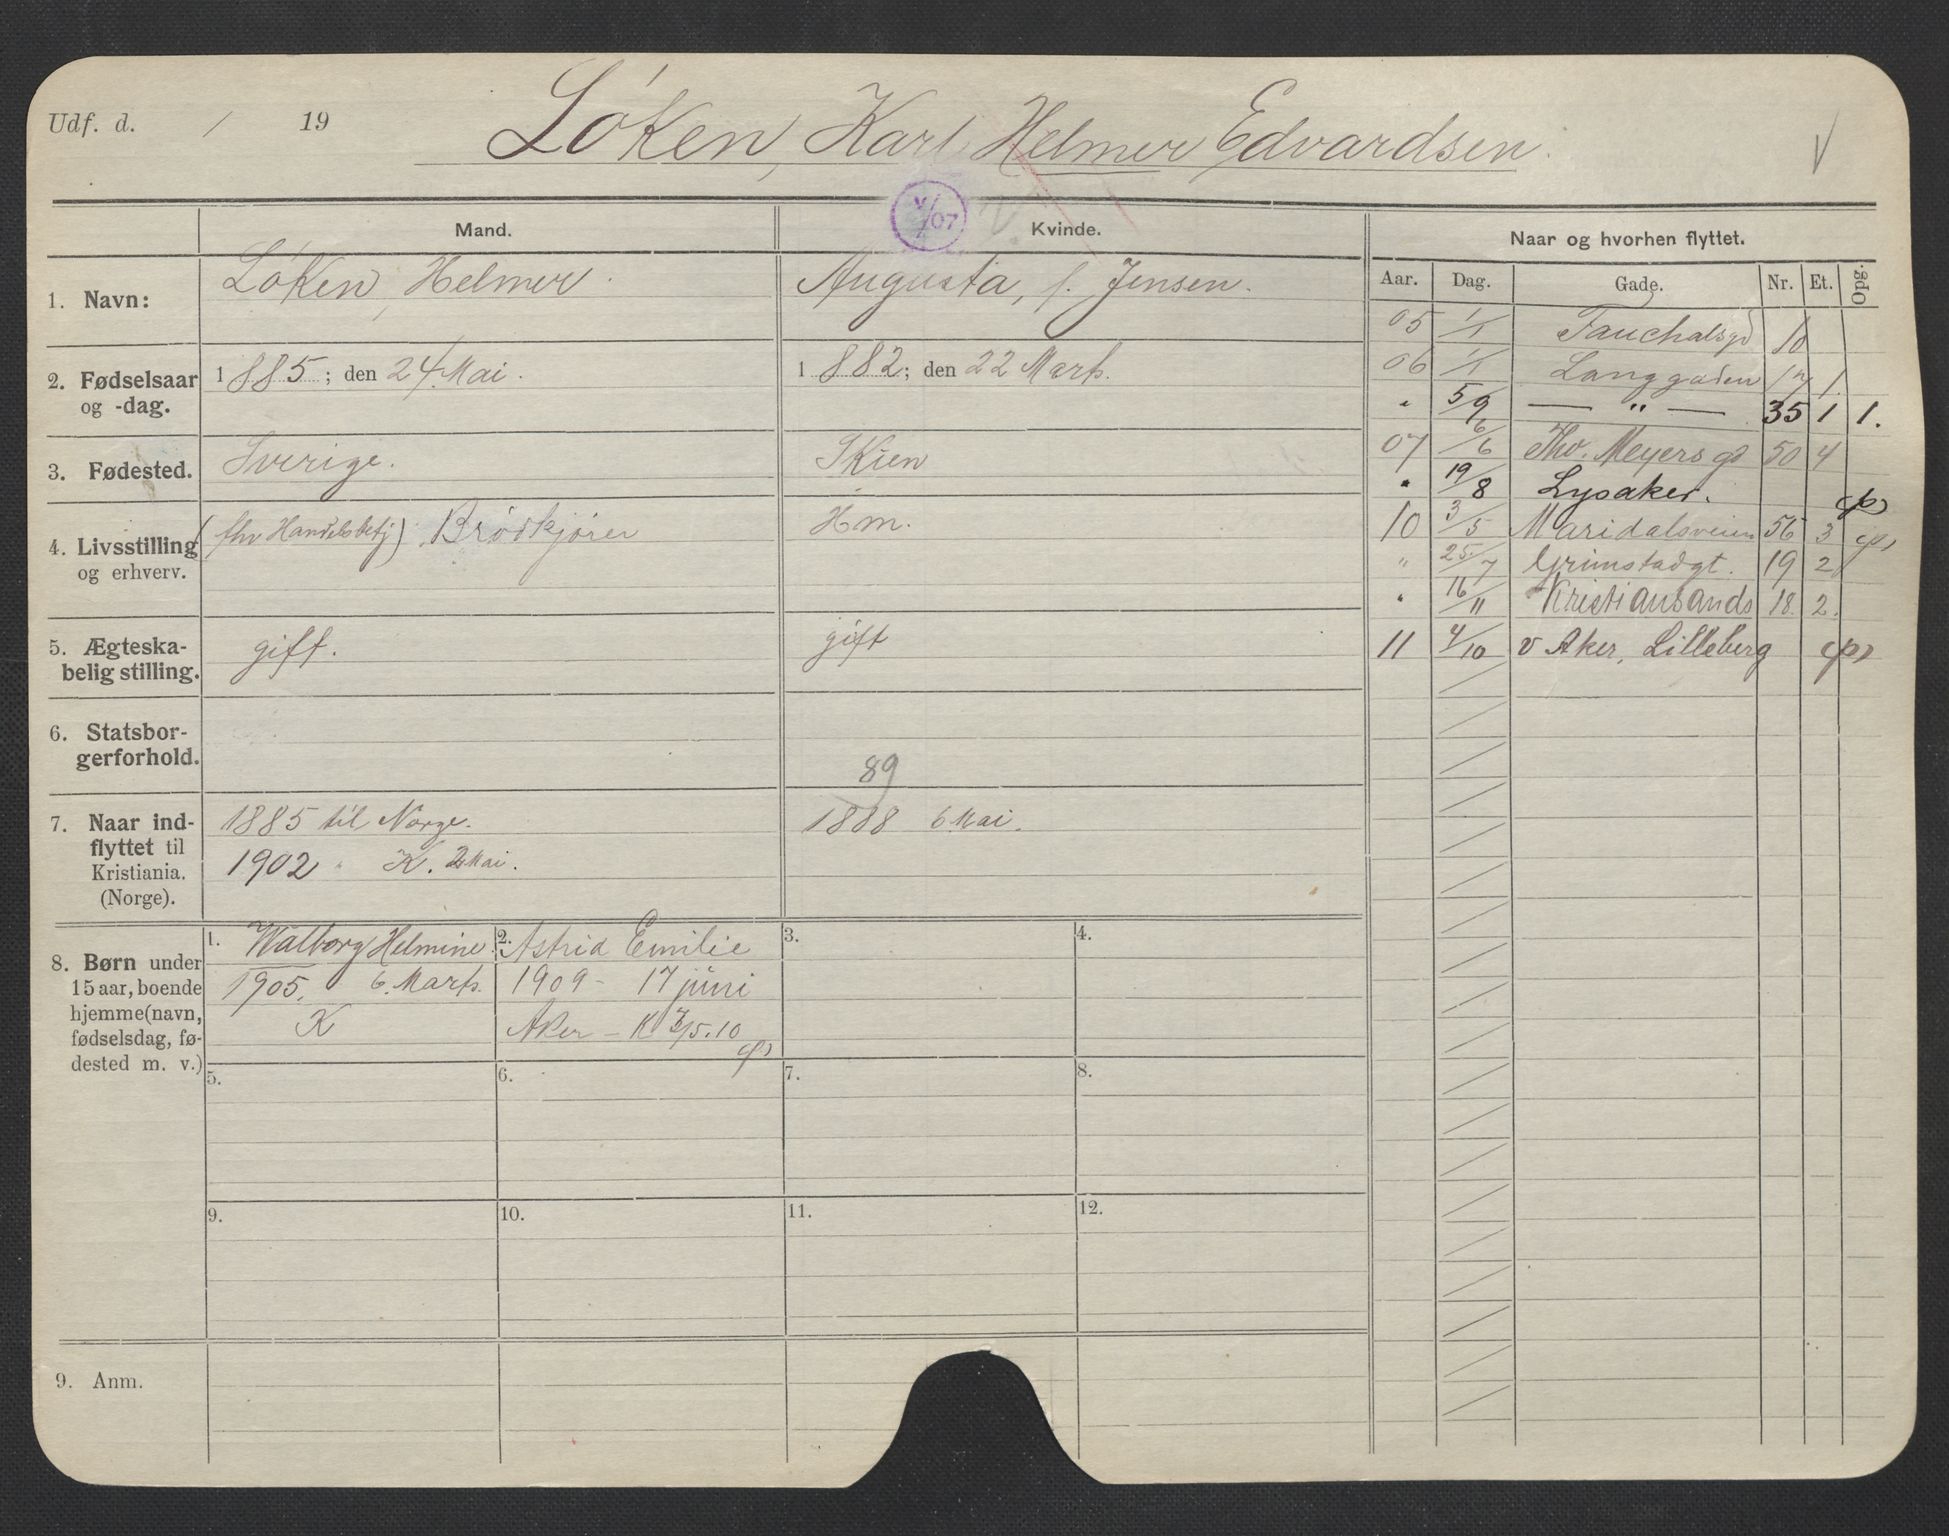 Udf. d. / 19
Løken, Karl Helmer Edvardsen.
V
V/07
Mand.
Kvinde.
Naar og hvorhen flyttet.
Aar. Dag. Gade. Nr. Et. Opg.
1. Navn:
Løken, Helmer.
Augusta, f. Jensen.
2. Fødselsaar
og -dag.
1885; den 24 Mai.
1882; den 22 Marts.
3. Fødested.
Sverige.
Skien
4. Livsstilling
og erhverv.
(fhv Handelsbetj) Brødkjører
Hm.
5. Ægteska-
belig stilling.
gift.
gift
6. Statsbor-
gerforhold.
7. Naar ind-
flyttet til
Kristiania.
(Norge).
1885 til Norge.
1902 " K. 2 Mai.
89
1888 6 Mai.
8. Børn under
15 aar, boende
hjemme (navn,
fødselsdag, fø-
dested m. v.)
1. Walborg Helmine
1905. 6. Marts.
K
2. Astrid Emilie
1909 - 17 juni
Aker - K 3/5.10
3.
4.
5.
6.
7.
8.
9.
10.
11.
12.
9. Anm.
05 1/1 Fauchaldsgd 10
06 1/1 Langgaden 17 1.
" 5/9 — " — 35 1 1.
07 6/6 Thv. Meyers gd 50 4
" 19/8 Lysaker.
10 3/5 Maridalsveien 56 3
" 25/7 Grimstadgt. 19 2
" 16/11 Kristiansands 18. 2.
11 4/10 v Aker, Lilleberg